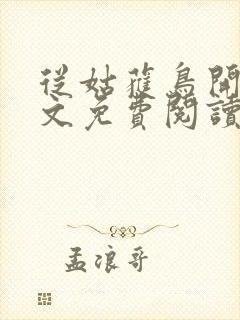 從姑獲鳥開
文免費閱讀
孟浪哥